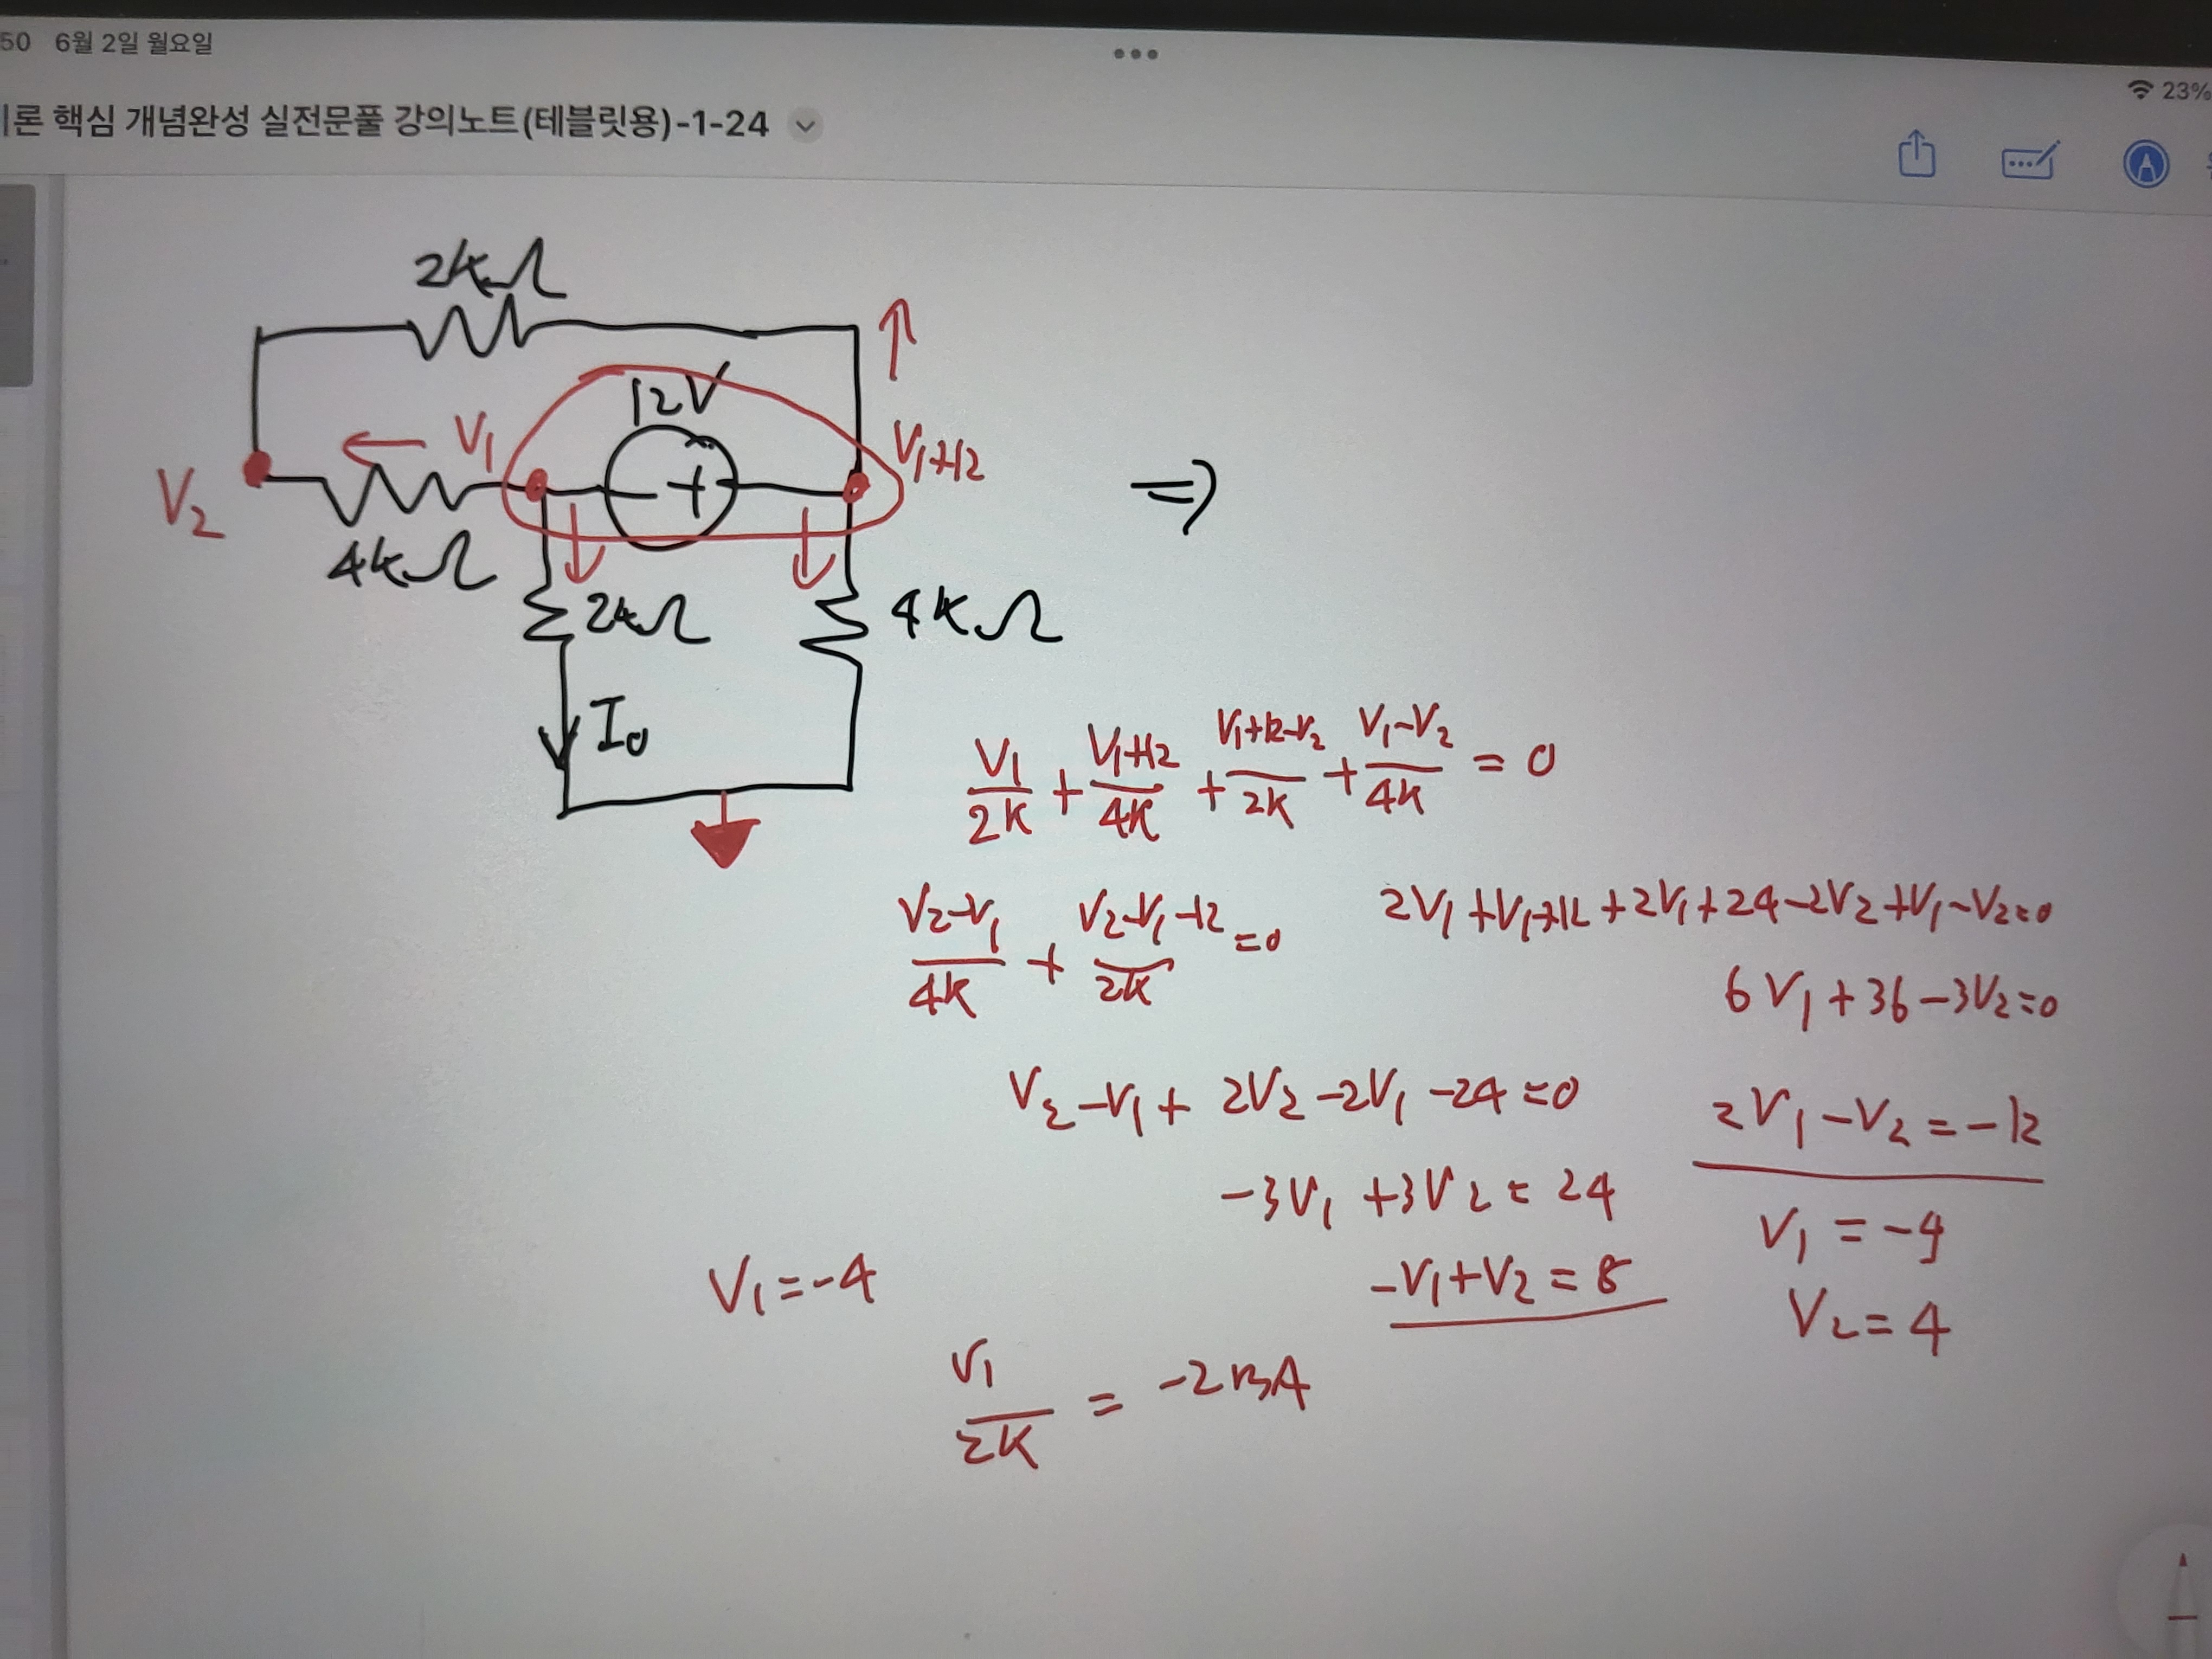 50 6월 2일 월요일
23%
이론 핵심 개념완성 실전문풀 강의노트(테블릿용)-1-24
2kΩ
12V
V₁
V₁+12
V₂
⇒
4kΩ
2kΩ
4kΩ
I₀
V₁/2K + V₁+12/4K + V₁+12-V₂/2K + V₁-V₂/4K = 0
V₂-V₁/4K + V₂-V₁-12/2K = 0
2V₁+V₁+12+2V₁+24-2V₂+V₁-V₂=0
6V₁+36-3V₂=0
V₂-V₁+2V₂-2V₁-24=0
2V₁-V₂=-12
-3V₁+3V₂=24
V₁=-4
-V₁+V₂=8
V₂=4
V₁=-4
V₁/2K = -2mA